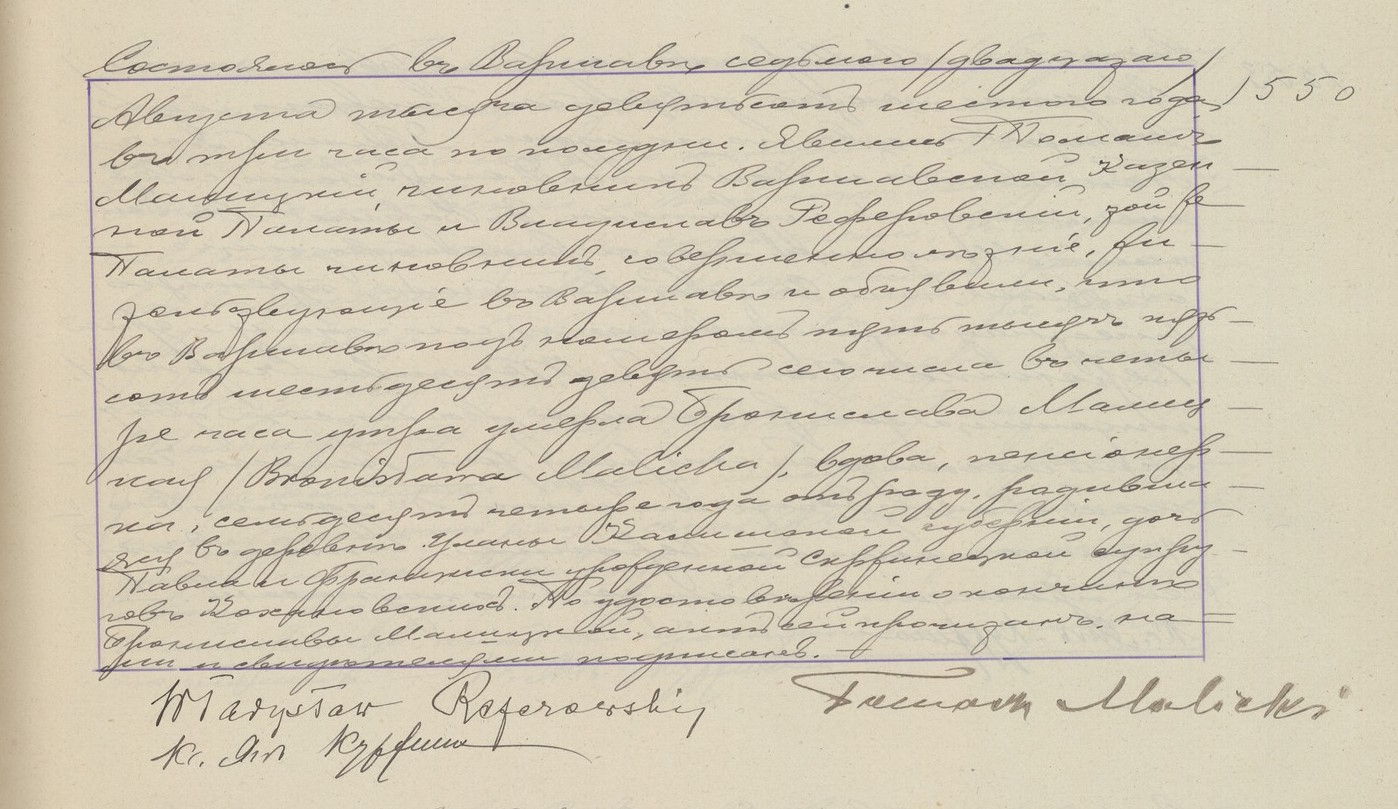 Состоялось въ Варшавѣ седьмого /двадцатаго/
Августа тысяча девятьсотъ шестого года, 1550
въ три часа по полудни. Явились Томашъ
Малицкій, чиновникъ Варшавской Казен
ной Палаты и Владиславъ Реферовскій, той же
Палаты чиновникъ, совершеннолѣтніе, жи-
тельствующіе въ Варшавѣ и объявили, что
въ Варшавѣ подъ номеромъ пять тысячъ пять-
сотъ шестьдесятъ девять сего числа въ четы-
ре часа утра умерла Брониславa Малиц-
кая /Bronisława Malicka/, вдова, пенсіонер-
ка, семьдесятъ четыре года отъ роду, родивша-
яся въ деревнѣ Уланы Калишской губерніи, дочь
Павла и Франциски урожденной супру-
говъ Кохановскихъ. По удостовѣреніи о кончинѣ
Брониславы Малицкой, актъ сей прочитанъ, на-
ми и свидѣтелями подписанъ.
Władysław Referowski Tomasz Malicki
Кс. Ян